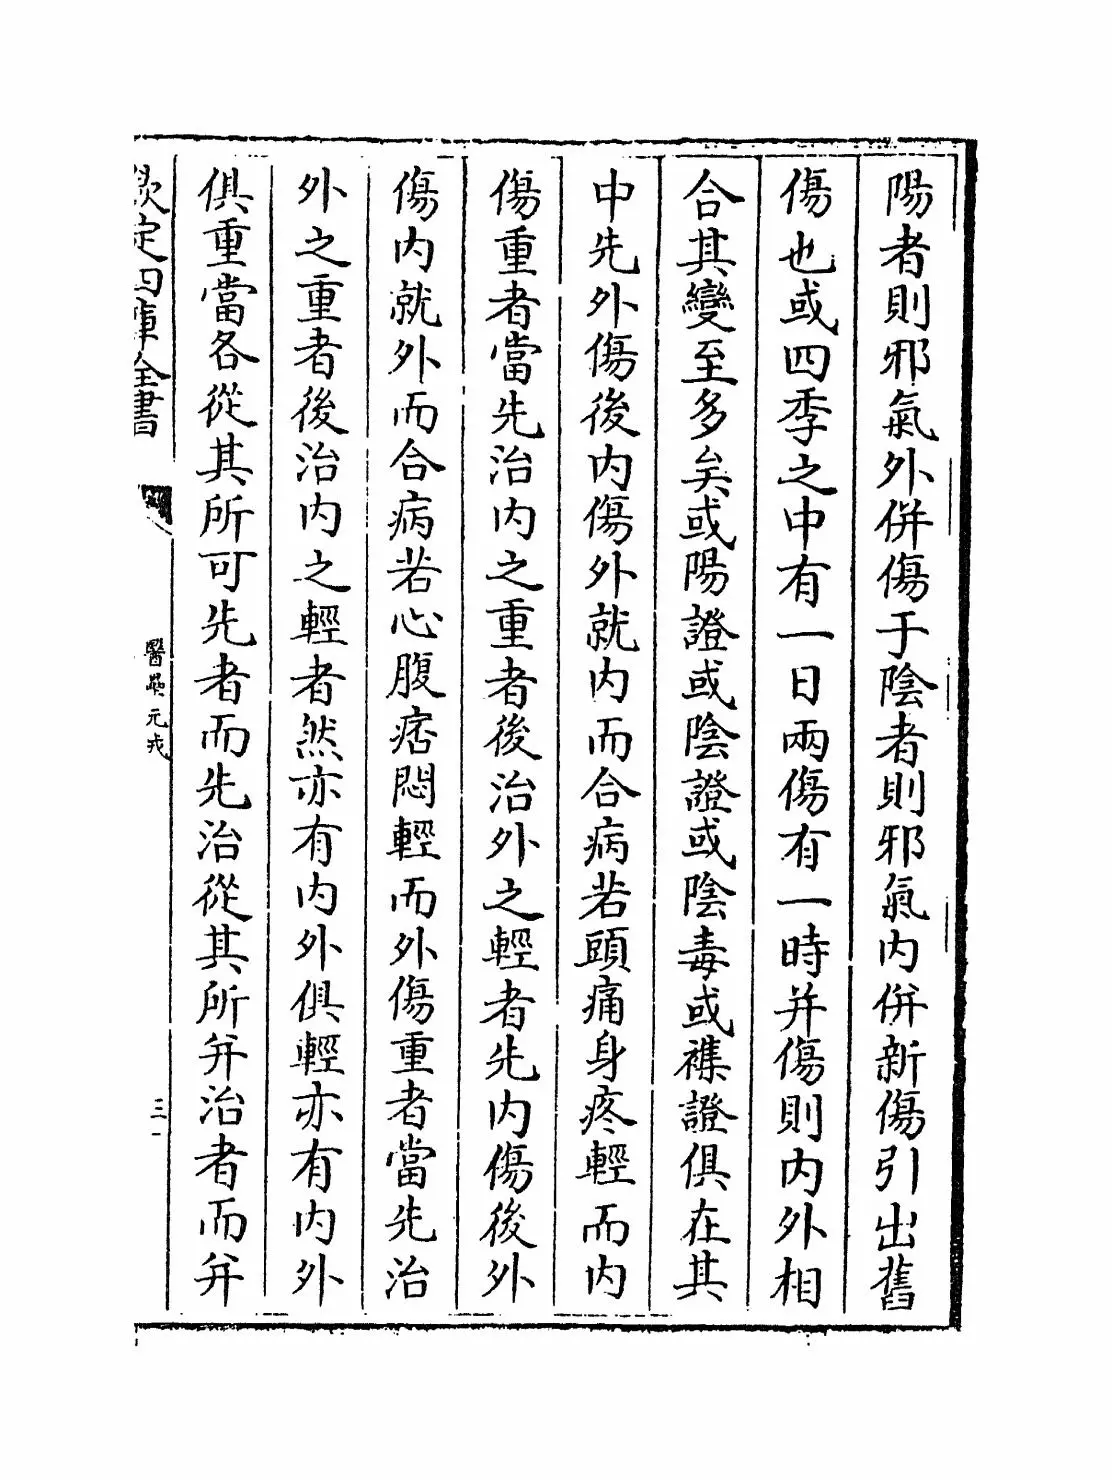 陽者則邪氣外併傷于陰者則邪氣内併新傷引出舊
傷也或四季之中有一日兩傷有一時并傷則内外相
合其變至多矣或陽證或陰證或陰毒或襍證俱在其
中先外傷後内傷外就内而合病若頭痛身疼輕而内
傷重者當先治内之重者後治外之輕者先内傷後外
傷内就外而合病若心腹痞悶輕而外傷重者當先治
外之重者後治内之輕者然亦有内外俱輕亦有内外
俱重當各從其所可先者而先治從其所并治者而并
欽定四庫全書
醫壘元戎
三